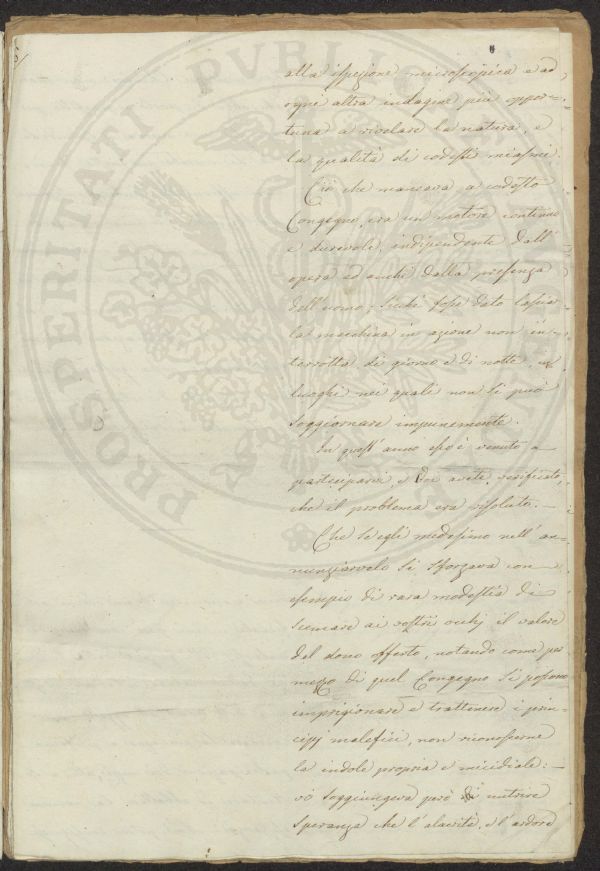 alla ispezione microscopica e ad
ogni altra indagine più oppor-
tuna a rivelare la natura, e
la qualità di codesti miasmi.
Ciò che mancava a codesto
Congegno, era un motore continuo
e durevole, indipendente dall'
opera ed anche dalla presenza
dell'uomo; sicché fosse dato lasciar
la macchina in azione non in-
terrotta di giorno e di notte, in
luoghi nei quali non si può
soggiornare impunemente.
In quest'anno esso è venuto a
parteciparvi, e Voi avete verificato,
che il problema era risoluto. —
Che se egli medesimo nell'an-
nunziarvelo si sforzava con
esempio di rara modestia di
scemare ai vostri occhj il valore
del dono offerto, notando come per
mezzo di quel Congegno si possono
imprigionare e trattenere i prin-
cipj malefici, non riconoscerne
la indole propria e micidiale: —
vi soggiungeva però di nutrire
speranza che l'alacrità, e l'ardore
PROSPERITATI PUBLICAE